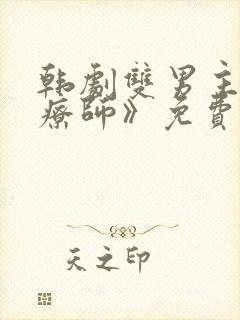 韩劇雙男主
療師》免費
天之印